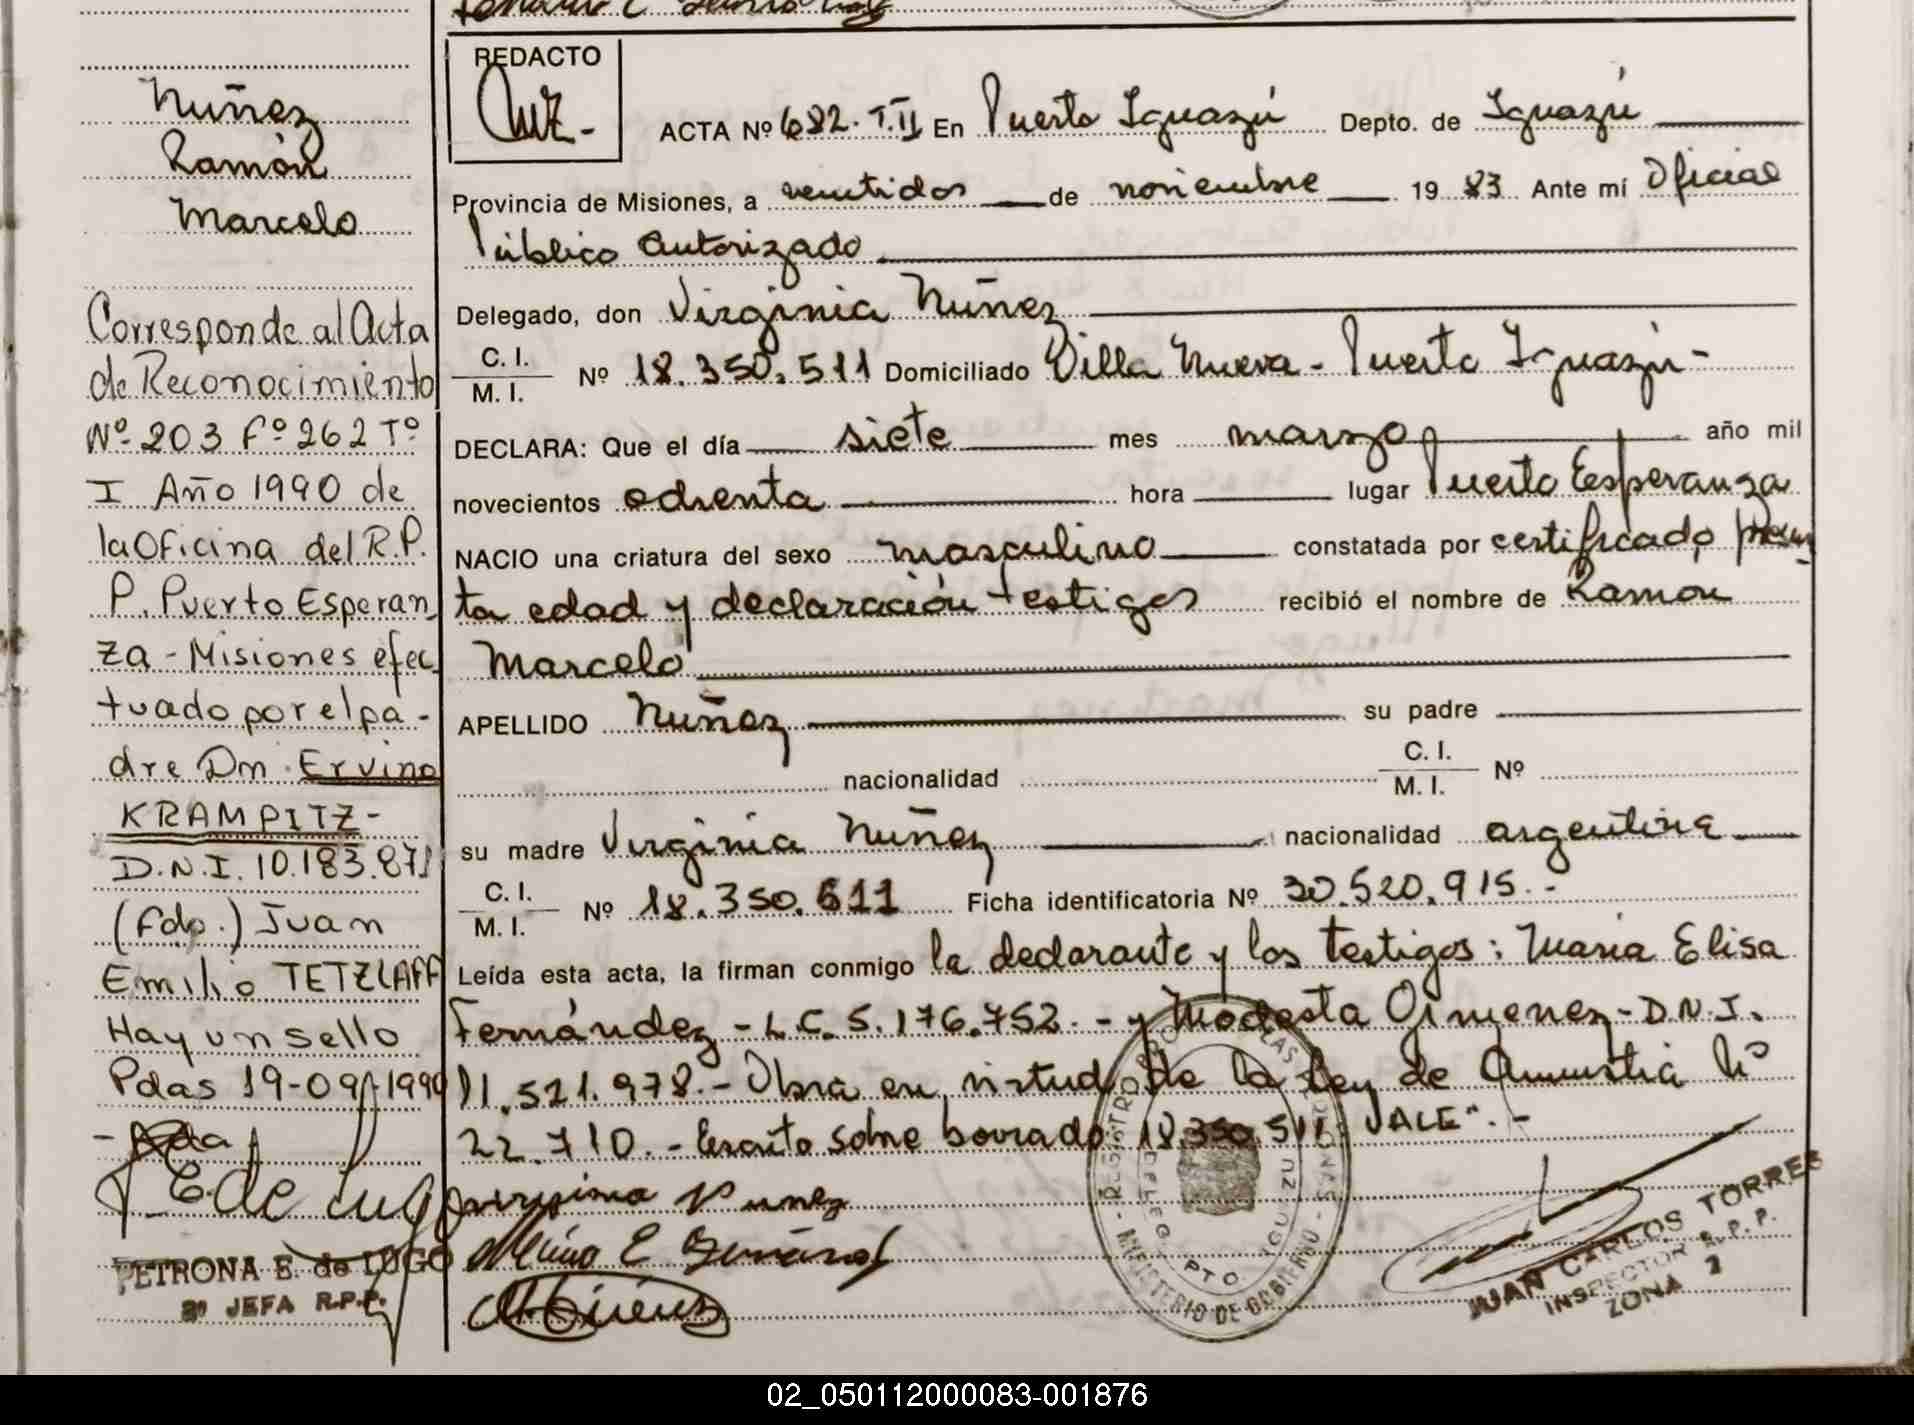 Nuñez
Ramón
Marcelo
Corresponde al Acta
de Reconocimiento
Nº 203 Fº 262 Tº
I Año 1990 de
la Oficina del R.P.
P. Puerto Esperan
za - Misiones efec
tuado por el pa-
dre Dn. Ervino
KRAMPITZ-
D.N.I. 10.183.871
(Fdo.) Juan
Emilio TETZLAFF
Hay un sello
Pdas 19-09-1990
E. de Lugo
PETRONA E. de LUGO
2º JEFA R.P.P.
REDACTO
ACTA Nº 682. T.II En Puerto Iguazú Depto. de Iguazú
Provincia de Misiones, a veintidos de noviembre 19 83 Ante mí Oficial
Público Autorizado
Delegado, don Virginia Nuñez
C. I.
M. I. Nº 18.350.511 Domiciliado Villa Nueva - Puerto Iguazú-
DECLARA: Que el día siete mes marzo año mil
novecientos ochenta hora lugar Puerto Esperanza
NACIO una criatura del sexo masculino constatada por certificado presun
ta edad y declaración testigos recibió el nombre de Ramon
Marcelo
APELLIDO Nuñez su padre
nacionalidad C. I.
M. I. Nº
su madre Virginia Nuñez nacionalidad argentina
C. I.
M. I. Nº 18.350.511 Ficha identificatoria Nº 30.520.915.-
Leída esta acta, la firman conmigo la declarante y los testigos: Maria Elisa
Fernández - L.C. 5.176.752. - y Modesta Gimenez - D.N.I.
11.521.978.- Obra en virtud de la Ley de Amnistia Nº
22.710.- Escrito sobre borrado 18.350.511 VALE".-
virginia Nunez
REGISTRO DE LAS PERSONAS
DELEG. PTO. IGUAZU
- MINISTERIO DE GOBIERNO -
JUAN CARLOS TORRES
INSPECTOR R.P.P.
ZONA 2
02_050112000083-001876